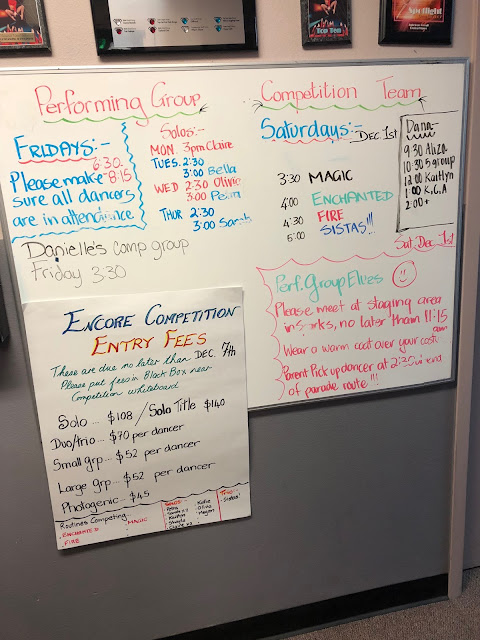 Top Ten
Spotlight
Performing Group
FRIDAYS:-
6:30
8:15
Please make
sure all dancers
are in attendance.
Solos:-
MON. 3pm Claire
TUES. 2:30
3:00 Bella
WED 2:30 Olivia
3:00
THUR 2:30
3:00 Sarah
Danielle's comp group
Friday 3:30
Competition Team
Saturdays:- Dec 1st
3:30 MAGIC
4:00 ENCHANTED
4:30 FIRE
5:00 SISTAS!!!
Dana:-
9:30
10:30 5 group
12:00 Kaitlyn
1:00 K,G,A
2:00+
Sat. Dec 1st
Perf. Group Elves
Please meet at staging area
in, no later than 11:15
am
Wear a warm coat over your cost.
Parent Pick up dancer at 2:30 in end
of parade route!!!
ENCORE COMPETITION
ENTRY FEES
These are due no later than DEC. 7th
Please put fees in Black Box near
Competition whiteboard
Solo ... $108 / Solo Title $140
Duo/trio... $70 per dancer
Small grp... $52 per dancer
Large grp... $52 per dancer
Photogenic - $45
Routines Competing
ENCHANTED
FIRE
MAGIC
SOLOS:-
Kaitlyn
Katie
Olivia
Megan
TRIO:-